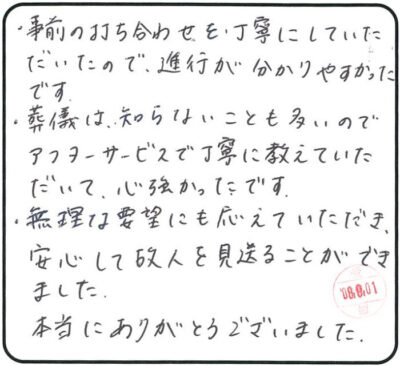 ・事前の打ち合わせを丁寧にしていた
だいたので、進行が分かりやすかった
です。
・葬儀は、知らないことも多いので
アフターサービスで丁寧に教えていた
だいて、心強かったです。
・無理な要望にも応えていただき、
安心して故人を見送ることができ
ました。
本当にありがとうございました。